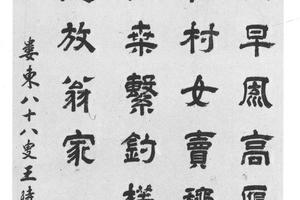 早凮高
村女賣
桒繫釣
放翁家
婁東八十八叟王時